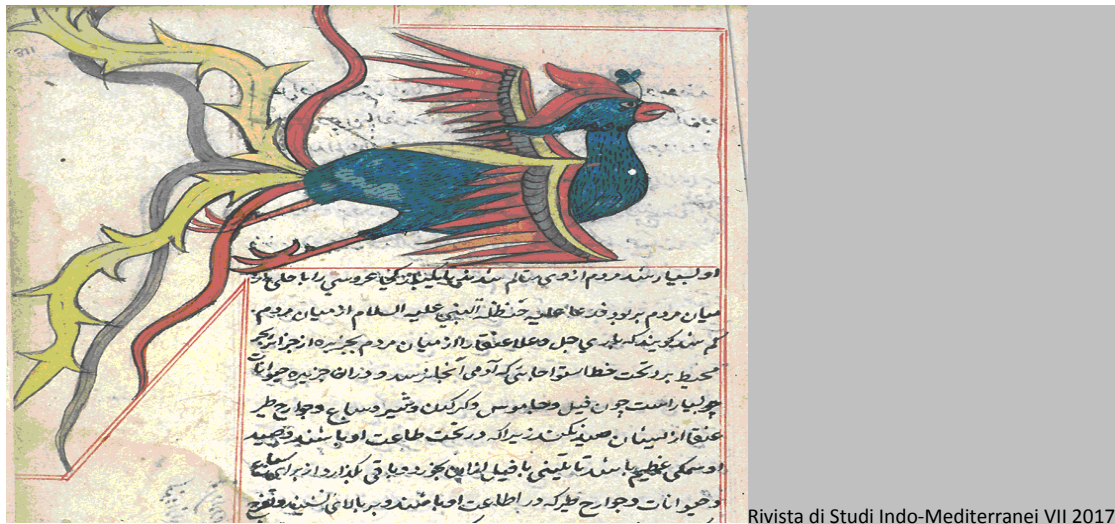 او بسیار شد مردم از وی متالم شدند عروسی را با حلی از
میان مردم بربود فدعا علیه حنظلة النبی علیه السلام از میان مردم
کم شد کویند که باری جل وعلا عنقا را از میان مردم بجزیره از جزایر بحر
محیط برد تحت خط استوا جایی که آدمی آنجا نرسد و دران جزیره حیوانات
بسیار است چون فیل و جاموس و کرکدن و سباع و جوارح طیر
عنقا ازیشان صید نکند زیرا که در تحت طاعت او باشند و صید
او سمکی عظیم باشد یا فیل بخورد و باقی بکذارد از برای
و حیوانات و جوارح طیر که در اطاعت او باشند و بر بالای و تفرج
Rivista di Studi Indo-Mediterranei VII 2017